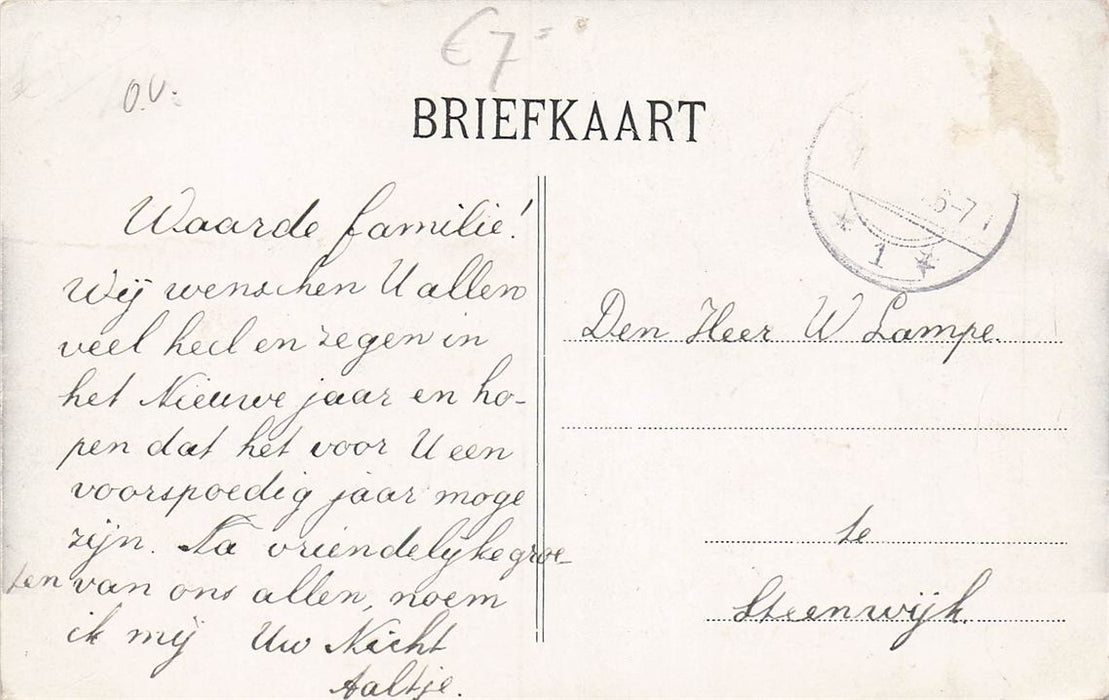 €7=
O.V.
BRIEFKAART
6-7
1
Waarde familie!
Wij wenschen U allen
veel heil en zegen in
het Nieuwe jaar en ho-
pen dat het voor U een
voorspoedig jaar moge
zijn. Na vriendelijke groe-
ten van ons allen, noem
ik mij Uw Nicht
Aaltje.
Den Heer W Lampe.
te
Steenwijk.